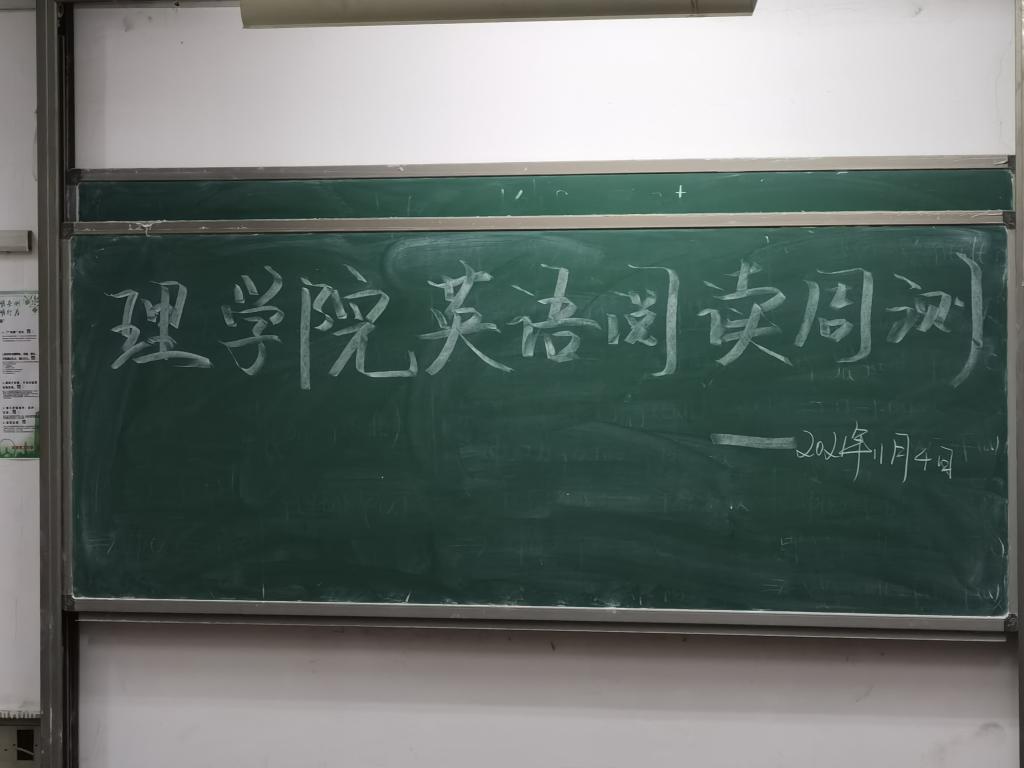 理学院英语阅读周测
——2021年11月4日